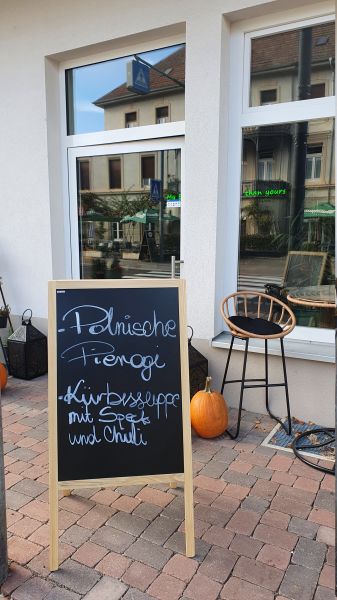 than yours
- Polnische
Pierogi
- Kürbissuppe
mit Speck
und Chili